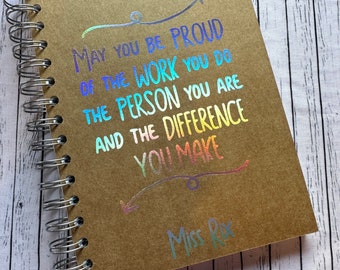 MAY YOU BE PROUD
OF THE WORK YOU DO
THE PERSON YOU ARE
AND THE DIFFERENCE
YOU MAKE
MISS